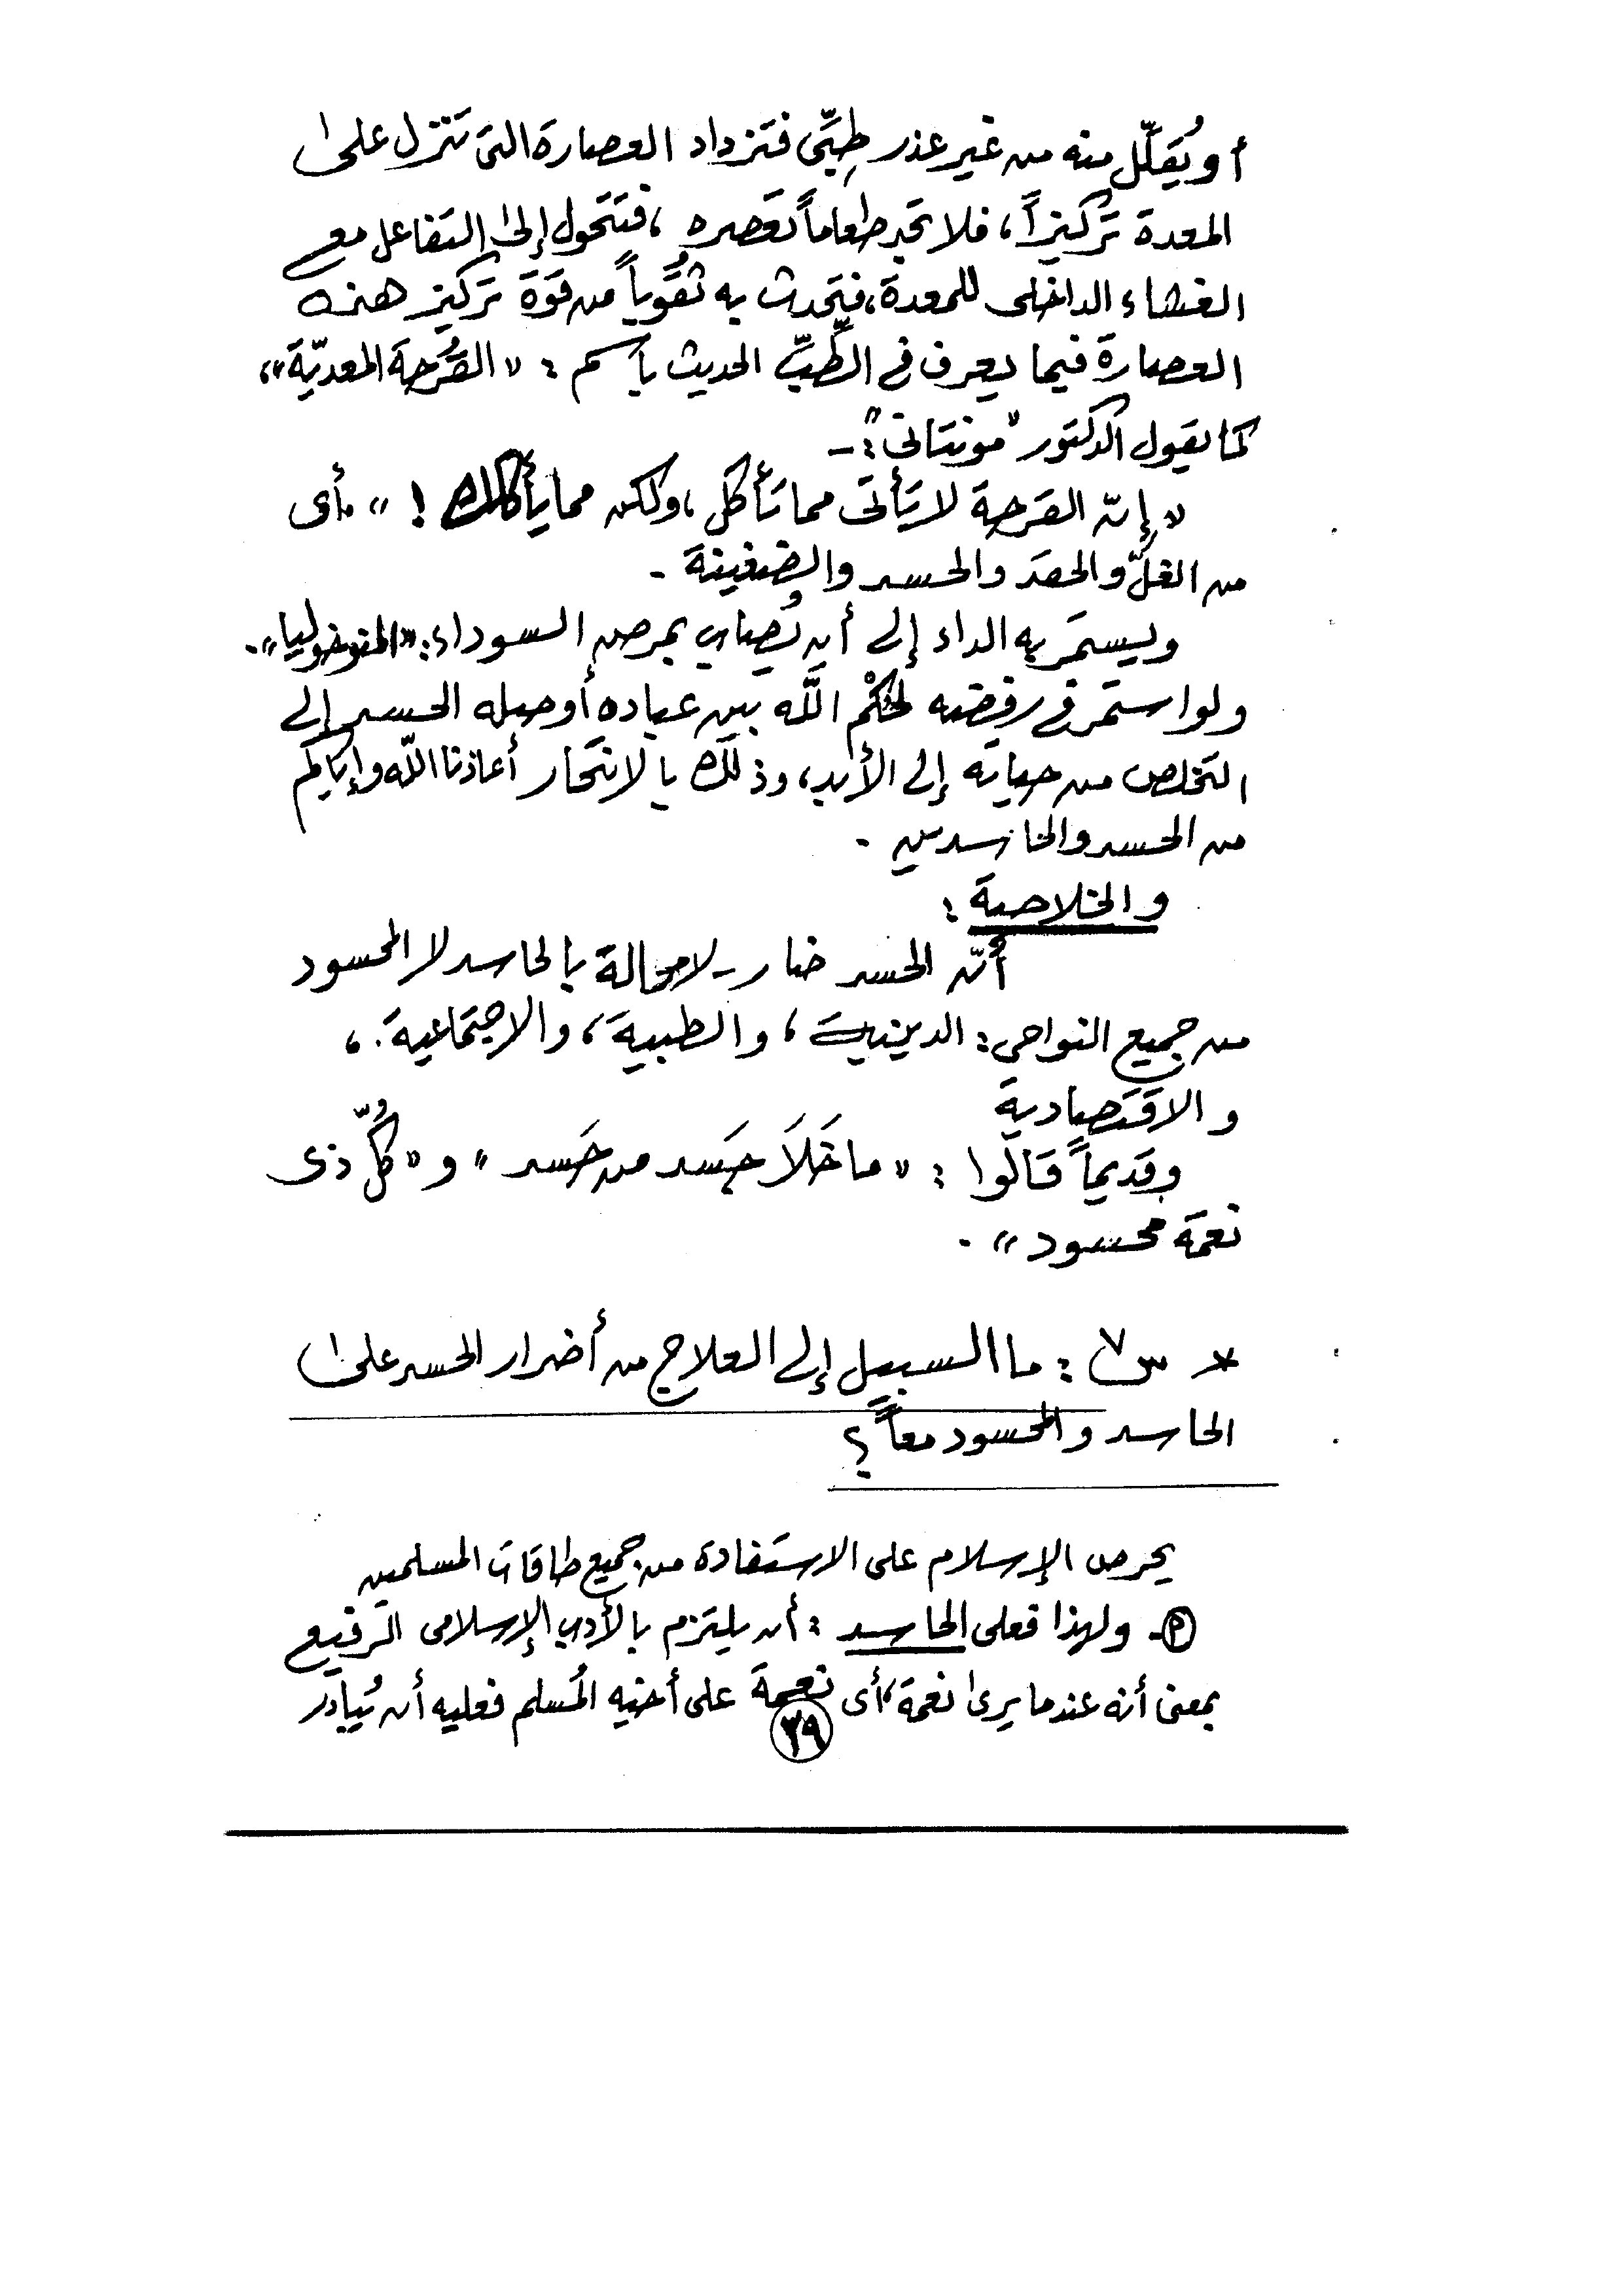 أو يُقلّل منه من غير عذر طِبِّى فتزداد العصارة التى تنزل على
المعدة تركيزاً، فلا تجد طعاماً تعصره، فتتحول إلى التفاعل مع
الغشاء الداخلى للمعدة، فتحدث به ثقُوباً من قوة تركيز هذه
العصارة فيما يعرف فى الطِّبِّ الحديث باسم : «القُرْحة المعديّة»،
كما يقول الدكتور "مونتانى" : -
«إنّ القرحة لا تأتى مما تأكل، ولكن مما يأكلك ! » . أى
من الغلّ والحقد والحسد والضغينة .
ويستمر به الداء إلى أن يُصاب بمرض السوداء: «المنوخوليا» .
ولو استمر فى رفضه لحُكْم اللَّه بين عباده أوصله الحسد إلى
التخلص من حياته إلى الأبد، وذلك بالانتحار أعاذنا اللَّه وإياكم
من الحسد والحاسدين .
والخلاصة :
أنّ الحسد ضار - لا محالة بالحاسد لا المحسود
من جميع النواحى : الدينية ، والطبية ، والاجتماعية . ،
والاقتصادية
وقديماً قالوا : « ما خَلَا جَسد من حَسد » و « كُلّ ذى
نعمة محسود » .
* س٧ : ما السبيل إلى العلاج من أضرار الحسد على
الحاسد والمحسود معاً ؟
يحرص الإسلام على الاستفادة من جميع طاقات المسلمين
ولهذا فعلى الحاسد : أن يلتزم بالأدب الإسلامى الرفيع
بمعنى أنه عندما يرى نعمة، أى نعمة على أخيه المُسلم فعليه أن يُبادر
٣٩